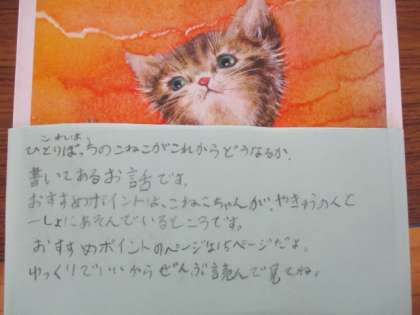 これは、
ひとりぼっちのこねこがこれからどうなるか、
書いてあるお話です。
おすすめポイントは、こねこちゃんが、やきゅうの人と
一しょにあそんでいるところです。
おすすめポイントのページは15ページだよ。
ゆっくりでいいからぜんぶ読んで見てね。